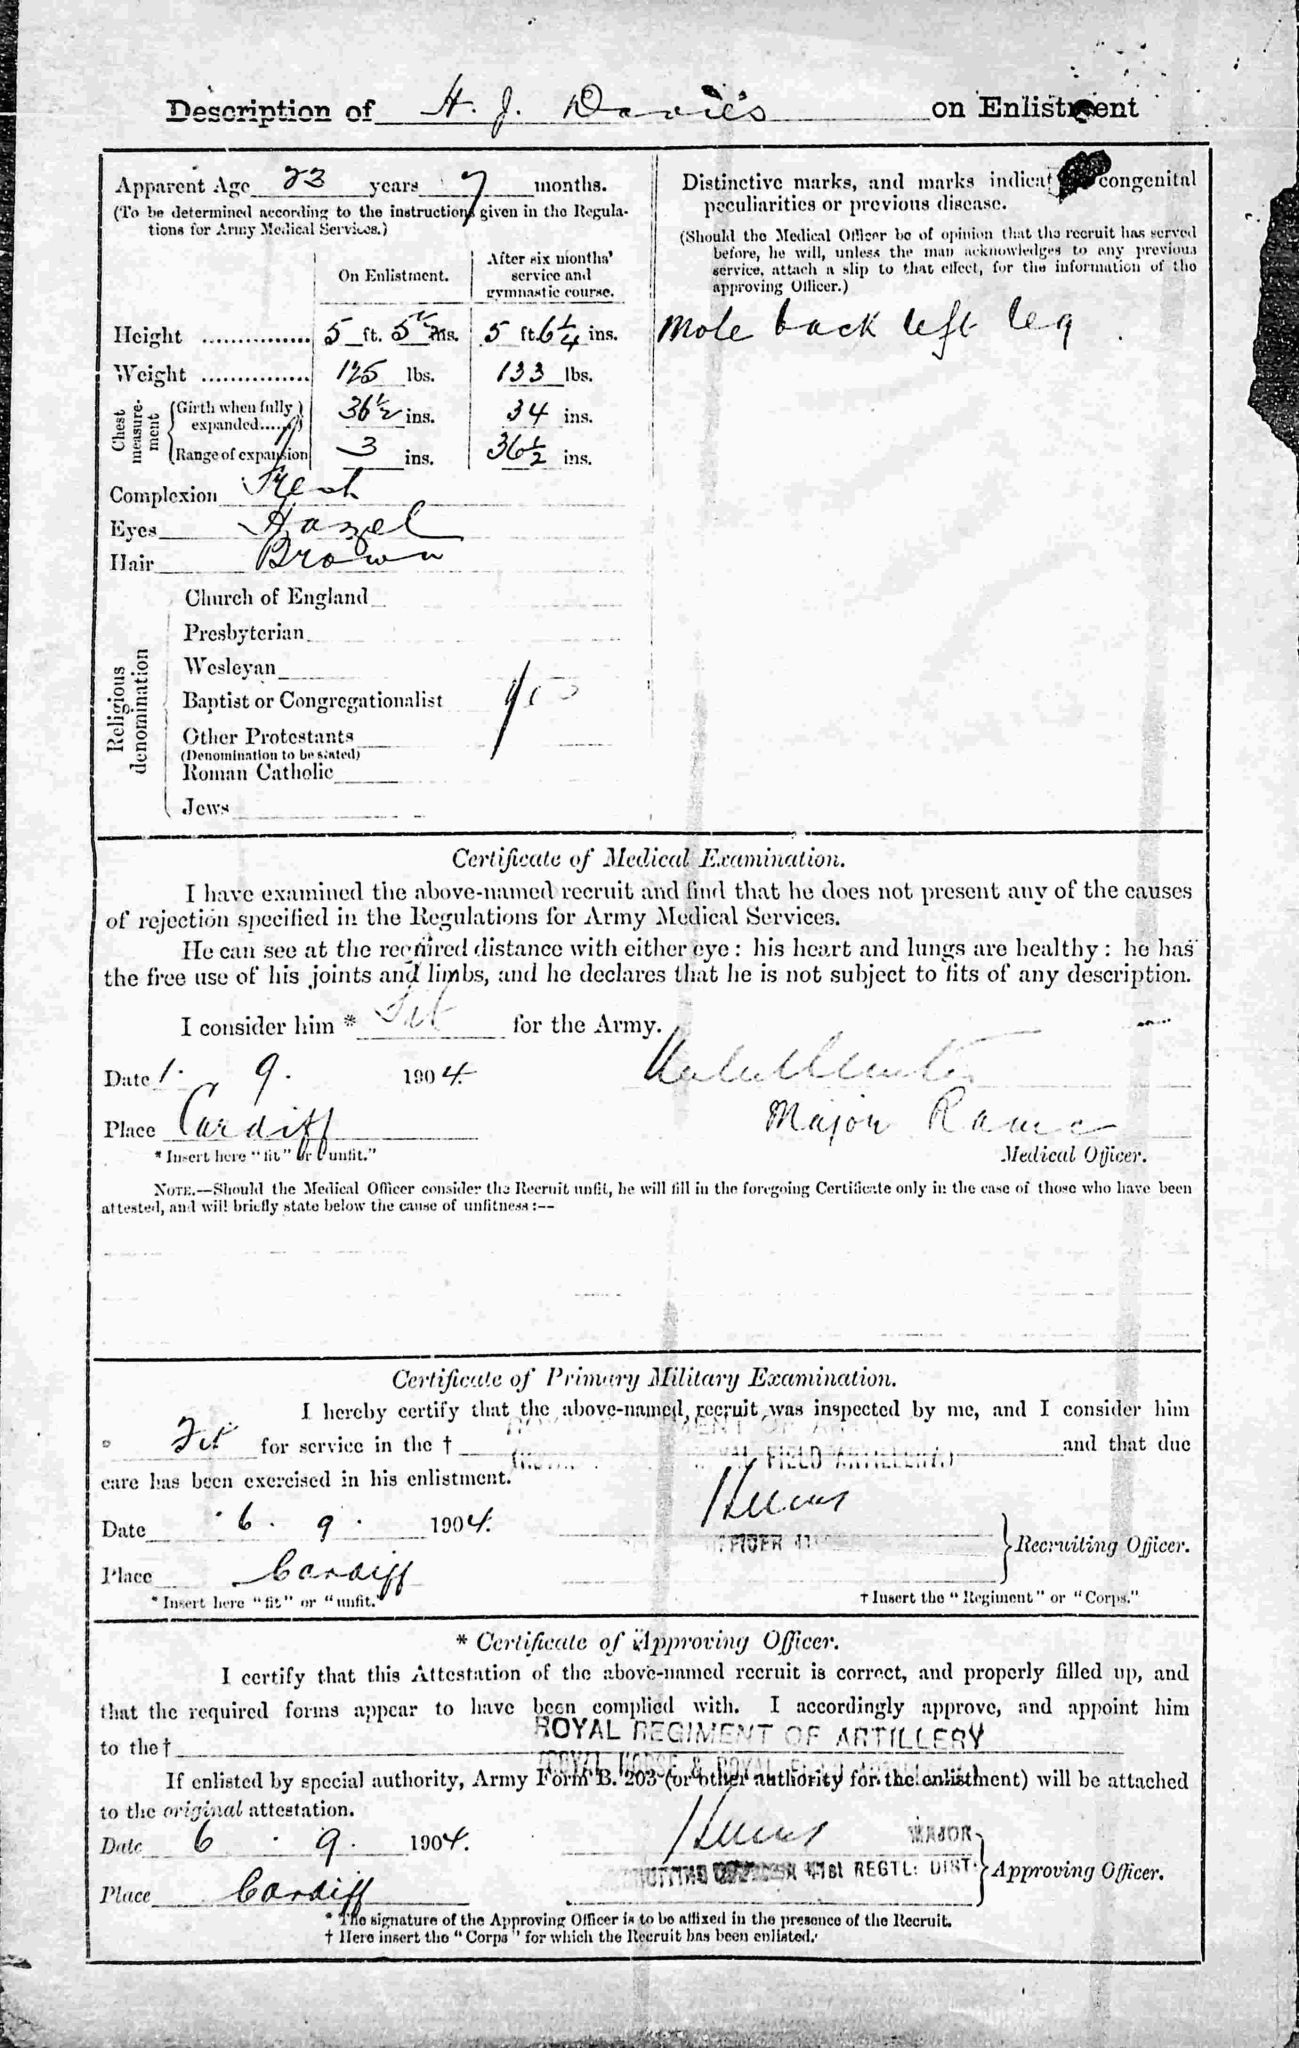 Description of H. J. Davies on Enlistment
Apparent Age 23 years 7 months.
(To be determined according to the instructions given in the Regula-
tions for Army Medical Services.)
On Enlistment.
After six months'
service and
gymnastic course.
Height ............... 5 ft. 5 ins. 5 ft. 6 1/4 ins.
Weight ............... 125 lbs. 133 lbs.
Chest
measure-
ment
Girth when fully
expanded...... 36 1/2 ins. 34 ins.
Range of expansion 3 ins. 36 1/2 ins.
Complexion Fresh
Eyes Hazel
Hair Brown
Religious
denomination
Church of England
Presbyterian
Wesleyan
Baptist or Congregationalist yes
Other Protestants
(Denomination to be stated)
Roman Catholic
Jews
Distinctive marks, and marks indicat congenital
peculiarities or previous disease.
(Should the Medical Officer be of opinion that the recruit has served
before, he will, unless the man acknowledges to any previous
service, attach a slip to that effect, for the information of the
approving Officer.)
Mole back left leg
Certificate of Medical Examination.
I have examined the above-named recruit and find that he does not present any of the causes
of rejection specified in the Regulations for Army Medical Services.
He can see at the required distance with either eye: his heart and lungs are healthy: he has
the free use of his joints and limbs, and he declares that he is not subject to fits of any description.
I consider him * Fit for the Army.
Date 1. 9. 1904.
Place Cardiff Major RAMC
* Insert here "fit" or "unfit." Medical Officer.
NOTE.—Should the Medical Officer consider the Recruit unfit, he will fill in the foregoing Certificate only in the case of those who have been
attested, and will briefly state below the cause of unfitness:--
Certificate of Primary Military Examination.
I hereby certify that the above-named recruit was inspected by me, and I consider him
* Fit for service in the † FIELD ARTILLERY) and that due
care has been exercised in his enlistment.
Date 6. 9. 1904.
Recruiting Officer.
Place Cardiff
* Insert here "fit" or "unfit." † Insert the "Regiment" or "Corps."
* Certificate of Approving Officer.
I certify that this Attestation of the above-named recruit is correct, and properly filled up, and
that the required forms appear to have been complied with. I accordingly approve, and appoint him
ROYAL REGIMENT OF ARTILLERY
to the†
(ROYAL HORSE & ROYAL FIELD ARTILLERY)
If enlisted by special authority, Army Form B. 203 (or other authority for the enlistment) will be attached
to the original attestation.
Date 6. 9. 1904. MAJOR
41st REGTL: DIST: Approving Officer.
Place Cardiff
* The signature of the Approving Officer is to be affixed in the presence of the Recruit.
† Here insert the "Corps" for which the Recruit has been enlisted.